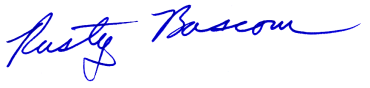 Rusty Bascom